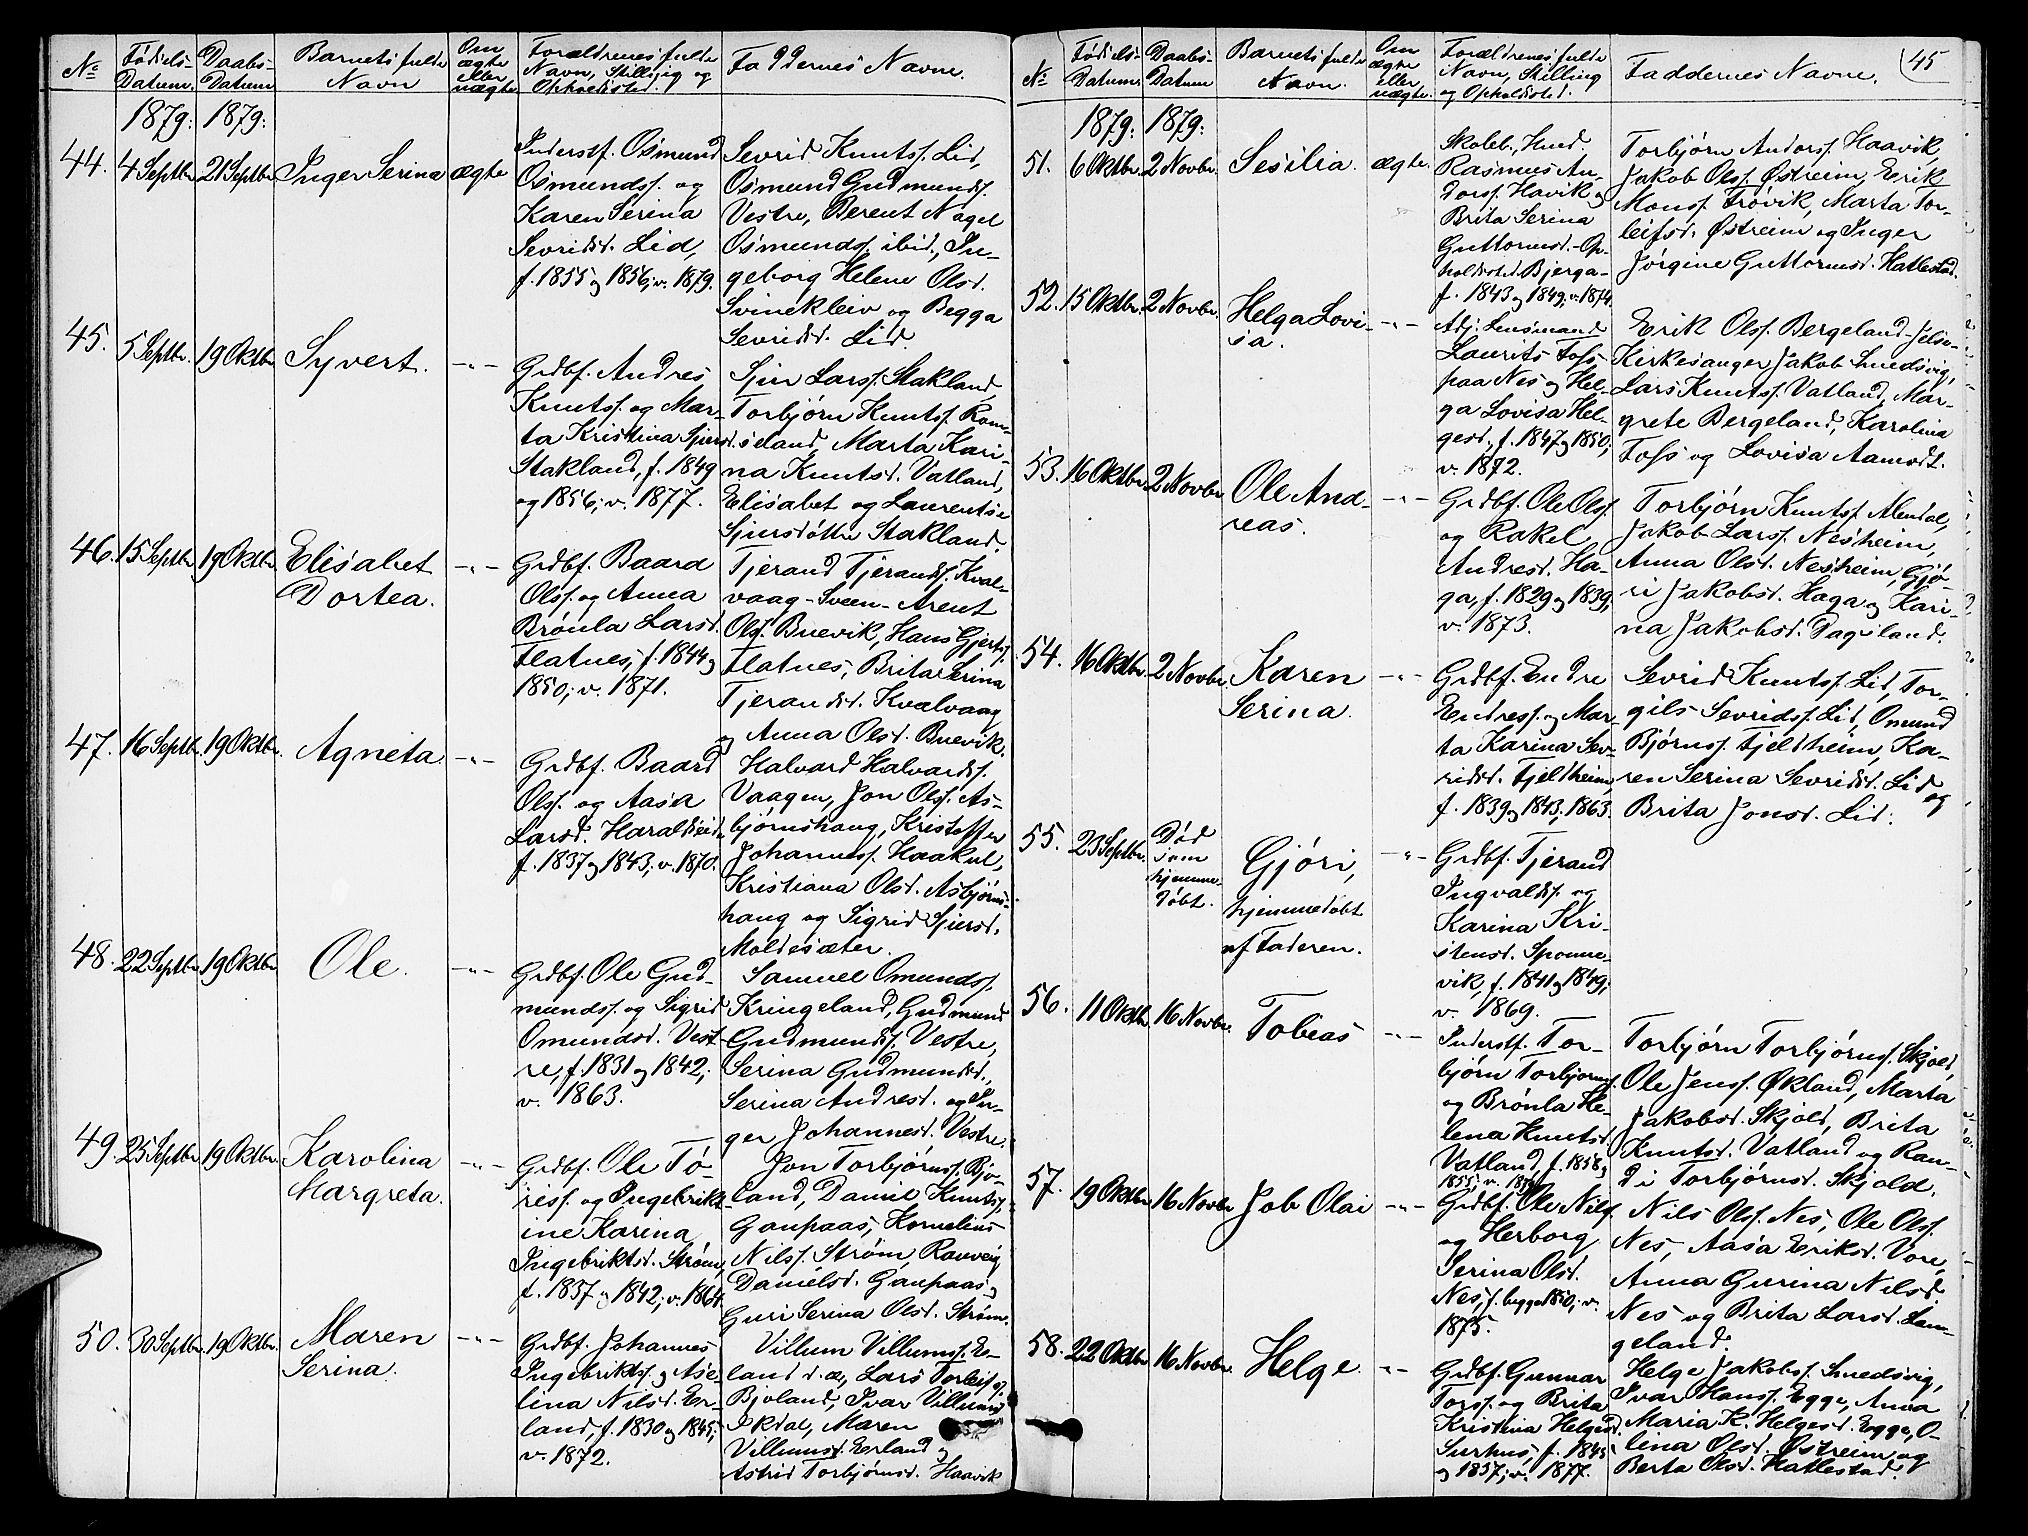 No
Fødsels-
Datum.
Daabs-
Datum
Barnets fulde
Navn
Om
ægte
eller
uægte
Forældrenes fulde
Navn, Stilling og
Opholdssted.
Faddernes Navne.
1879: 1879:
44. 4 Septbr. 21 Septbr. Inger Serina ægte
Inderstf. Osmund
Osmundsf. og
Karen Serina
Sevridsd. Lid,
f. 1855 og 1856; v. 1879.
Sevrid Knutsf. Lid,
Osmund Gudmundsf.
Vestre, Berent Nagel
Osmundsf. ibid., In-
geborg Helene Olsd.
Svinekleiv og Begga
Sevridsd. Lid.
45. 5 Septbr. 19 Oktbr. Syvert. -"-
Grdbf. Andres
Knutsf. og Mar-
ta Kristina Sjursd.
Stakland, f. 1849
og 1856; v. 1877.
Sjur Larsf. Stakland,
Torbjörn Knutsf. Rom-
seland, Marta Kari-
na Knutsd. Vatland,
Elisabet og Laurentse
Sjursdötre Stakland.
46. 15 Septbr. 19 Oktbr. Elisabet
Dortea. -"-
Grdbf. Baard
Olsf. og Anna
Brönla Larsd.
Flatnes, f. 1844 og
1850; v. 1871.
Tjerand Tjerandsf. Kval-
vaag-Sveen- Arent
Olsf. Buevik, Hans Gjertsf.
Flatnes, Brita Serina
Tjerandsd. Kvalvaag
og Anna Olsd. Buevik.
47. 16 Septbr. 19 Oktbr. Agneta -"-
Grdbf. Baard
Olsf. og Aasa
Larsd. Haraldseid,
f. 1837 og 1843; v. 1870.
Halvard Halvardsf.
Vaagen, Jon Olsf. As-
björnshaug, Kristoffer
Johannesf. Haakul,
Kristiana Olsd. Asbjörns-
haug og Sigrid Sjursd.
Moldesæter.
48. 22 Septbr. 19 Oktbr. Ole. -"-
Grdbf. Ole Gud-
mundsf. og Sigrid
Omundsd. Vest-
re, f. 1831 og 1842;
v. 1863.
Samuel Omundsf.
Kringeland, Gudmund
Gudmundsf. Vestre,
Serina Gudmundsd.,
Serina Andresd. og In-
ger Johannesd. Vestre.
49. 25 Septbr. 19 Oktbr. Karolina
Margreta. -"-
Grdbf. Ole Tö-
resf. og Ingebrikt-
ine Karina
Ingebriktsd. Ström,
f. 1837 og 1842; v. 1864.
Jon Torbjörnsf. Bjo-
land, Daniel Knutsf.
Gaupaas, Kornelius
Nilsf. Ström, Ranveig
Danielsd. Gaupaas og
Guri Serina Olsd. Ström.
50. 30 Septbr. 19 Oktbr. Maren
Serina. -"-
Grdbf. Johannes
Ingebriktsf. og Ase-
lina Nilsd. Er-
land, f. 1830 og 1845;
v. 1872.
Villum Villumsf. Er-
land d. æ., Lars Torleifsf.
Bjoland, Ivar Villumsf.
Ikdal, Maren
Villumsd. Erland og
Astrid Torbjörnsd. Haavik
45
No
Fødsels-
Datum.
Daabs-
Datum
Barnets fulde
Navn.
Om
ægte
eller
uægte.
Forældrenes fulde
Navn, Stilling
og Opholdssted.
Faddernes Navne.
1879: 1879:
51. 6 Oktbr. 2 Novbr. Sesilia. ægte.
Skoleb., Husd.
Rasmus An-
dorsf. Havik og
Brita Serina
Guttormsd. - Op-
holdssted Bjerga-
f. 1843 og 1849; v. 1874.
Torbjörn Andorsf. Haavik,
Jakob Olsf. Östreim, Erik
Monsf. Trövik, Marta Tor-
leifsd. Östreim og Inger
Jörgine Guttormsd. Hatlestad.
52. 15 Oktbr. 2 Novbr. Helga Lovi-
sa. -"-
Adj. Lensmand
Laurits Foss
paa Nes og Hel-
ga Lovisa Hel-
gesd., f. 1847 og 1850;
v. 1872.
Erik Olsf. Bergeland-Jelse-
Kirkesanger Jakob Smedsvig,
Lars Knutsf. Vatland, Mar-
grete Bergeland, Karolina
Foss og Lovisa Aamodt.
53. 16 Oktbr. 2 Novbr. Ole And-
reas. -"-
Grdbf. Ole Olsf.
og Rakel
Andresd. Ha-
ga, f. 1829 og 1839;
v. 1873.
Torbjörn Knutsf. Alendal,
Jakob Larsf. Nesheim,
Anna Olsd. Nesheim, Gjö-
ri Jakobsd. Haga og Kari-
na Jakobsd. Dagsland.
54. 16 Oktbr. 2 Novbr. Karen
Serina. -"-
Grdbf. Endre
Endresf. og Mar-
ta Karina Sev-
ridsd. Fjeldheim,
f. 1839 og 1843; 1863.
Sevrid Knutsf. Lid, Tor-
gils Sevridsf. Lid, Omund
Björnsf. Fjeldheim, Ka-
ren Serina Sevridsd. Lid og
Brita Jonsd. Lid.
55. 23 Septbr. Död
som
hjemme-
döbt.
Gjöri,
hjemmedöbt
af Faderen. -"-
Grdbf. Tjerand
Ingvaldsf. og
Karina Kri-
stensd. Sponne-
vik, f. 1841 og 1849;
v. 1869.
56. 11 Oktbr. 16 Novbr. Tobias -"-
Inderstf. Tor-
björn Torbjörnsf.
og Brönla He-
lena Knutsd.
Vatland, f. 1858 og
1855; v.
Torbjörn Torbjörnsf. Skjold,
Ole Jensf. Økland, Marta
Jakobsd. Skjold, Brita
Knutsd. Vatland og Ran-
di Torbjörnsd. Skjold.
57. 19 Oktbr. 16 Novbr. Job Olai -"-
Grdbf. Ole Nilsf.
og Herborg
Serina Olsd.
Nes, f. begge 1850; v.
1875.
Nils Olsf. Nes, Ole Olsf.
Nes, Aasa Eriksd. Vore,
Anna Gurina Nilsd.
Nes og Brita Larsd. Lan-
geland.
58. 22 Oktbr. 16 Novbr. Helge. -"-
Grdbf. Gunnar
Torsf. og Brita
Kristina Helgesd.
Surhus, f. 1845
og 1857; v. 1877.
Helge Jakobsf. Smedsvig,
Ivar Hansf. Egge, Anna
Maria K. Helgesd. Egge, O-
lina Olsd. Östreim og
Berta Olsd. Hatlestad.